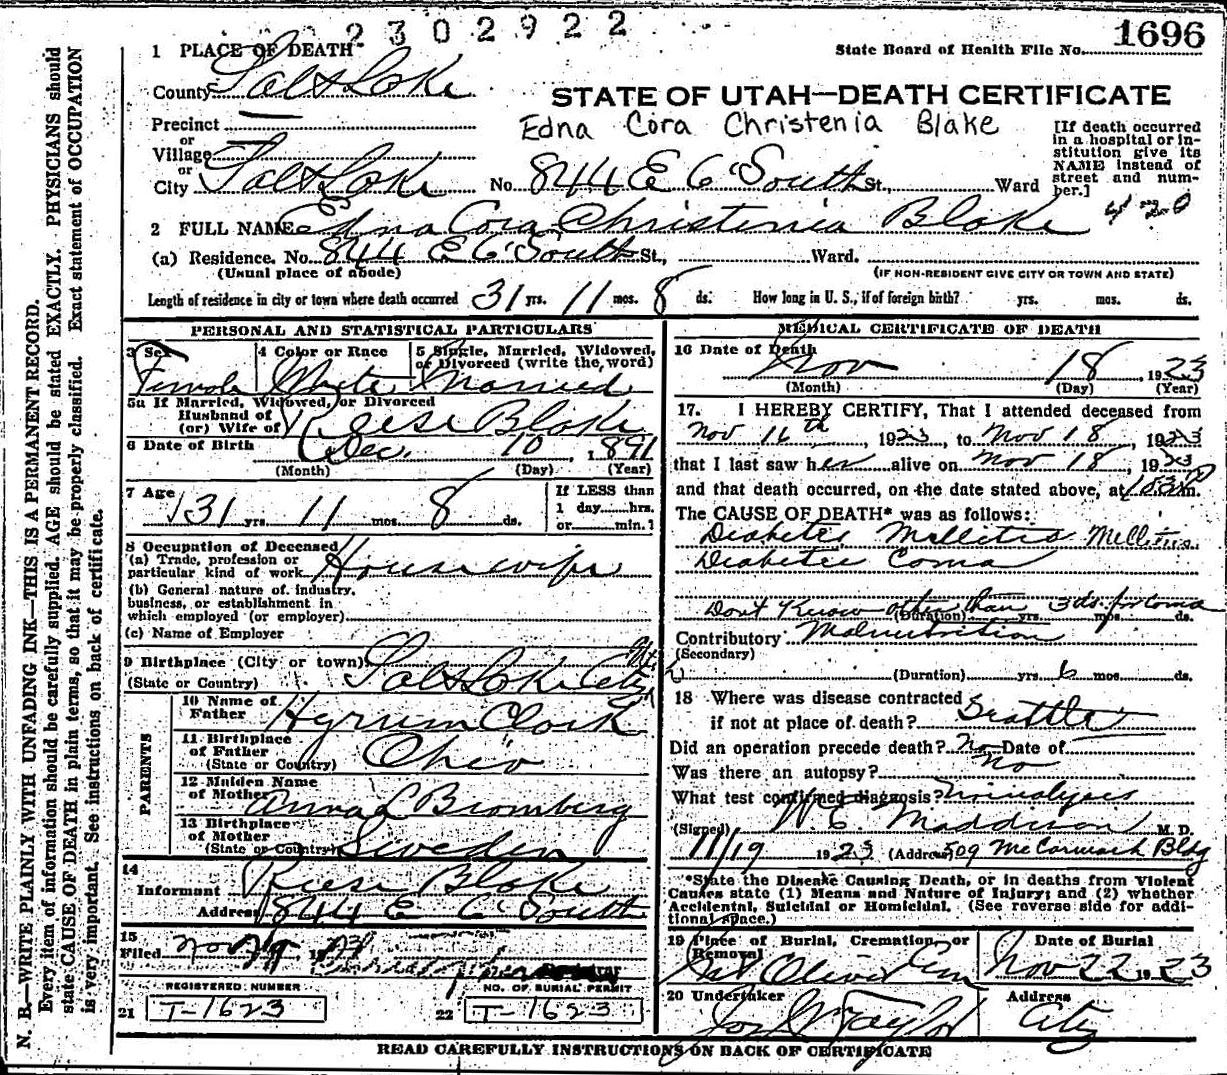 2302922
1696
State Board of Health File No.
1 PLACE OF DEATH
County Salt Lake
STATE OF UTAH—DEATH CERTIFICATE
Edna Cora Christenia Blake
Precinct
or
Village
or
City Salt Lake No. 844 E 6 South St., Ward
[If death occurred
in a hospital or in-
stitution give its
NAME instead of
street and num-
ber.]
2 FULL NAME Edna Cora Christenia Blake
(a) Residence. No. 844 E 6 South St., Ward.
(Usual place of abode) (IF NON-RESIDENT GIVE CITY OR TOWN AND STATE)
Length of residence in city or town where death occurred 31 yrs. 11 mos. 8 ds. How long in U. S., if of foreign birth? yrs. mos. ds.
PERSONAL AND STATISTICAL PARTICULARS
3 Sex Female
4 Color or Race White
5 Single, Married, Widowed,
or Divorced (write the word)
Married
5a If Married, Widowed, or Divorced
Husband of
(or) Wife of Reese Blake
6 Date of Birth Dec. 10, 1891
(Month) (Day) (Year)
7 Age 31 yrs. 11 mos. 8 ds.
If LESS than
1 day hrs.
or min.?
8 Occupation of Deceased
(a) Trade, profession or
particular kind of work Housewife
(b) General nature of industry,
business, or establishment in
which employed (or employer)
(c) Name of Employer
9 Birthplace (City or town) Salt Lake City
(State or Country) Ut
10 Name of
Father Hyrum Clark
11 Birthplace
of Father
(State or Country) Ohio
12 Maiden Name
of Mother Anna L Bromberg
13 Birthplace
of Mother
(State or Country) Sweden
PARENTS
14
Informant Reese Blake
Address 844 E 6 South
15
Filed Nov 19
Registrar
REGISTERED NUMBER NO. OF BURIAL PERMIT
21 T-1623 22 T-1623
MEDICAL CERTIFICATE OF DEATH
16 Date of Death
Nov 18, 1923
(Month) (Day) (Year)
17. I HEREBY CERTIFY, That I attended deceased from
Nov 16th, 1923, to Nov 18, 1923
that I last saw her alive on Nov 18, 1923
and that death occurred, on the date stated above, at 1030 P m.
The CAUSE OF DEATH* was as follows:
Diabetes Mellitis Mellitis
Diabetic Coma
Dont Know other than 3 ds. for Coma
(Duration) yrs. mos. ds.
Contributory Malnutrition
(Secondary)
(Duration) yrs. 6 mos. ds.
18 Where was disease contracted
if not at place of death? Seattle
Did an operation precede death? No Date of
Was there an autopsy? No
What test confirmed diagnosis? Urinalyses
(Signed) W. E. Maddison M. D.
11/19 1923 (Address) 509 McCormack Bldg
*State the Disease Causing Death, or in deaths from Violent
Causes state (1) Means and Nature of Injury; and (2) whether
Accidental, Suicidal or Homicidal. (See reverse side for addi-
tional space.)
19 Place of Burial, Cremation, or
Removal
Mt Olivet Cem
Date of Burial
Nov 22 1923
20 Undertaker
Jos Wm Taylor
Address
City
READ CAREFULLY INSTRUCTIONS ON BACK OF CERTIFICATE
N. B.—WRITE PLAINLY WITH UNFADING INK—THIS IS A PERMANENT RECORD.
Every item of information should be carefully supplied. AGE should be stated EXACTLY. PHYSICIANS should
state CAUSE OF DEATH in plain terms, so that it may be properly classified. Exact statement of OCCUPATION
is very important. See instructions on back of certificate.